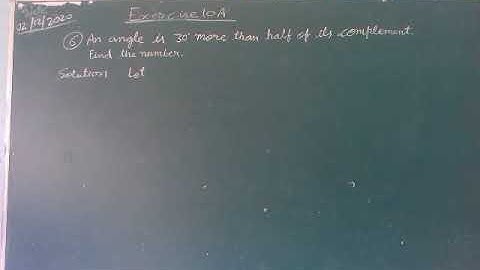 12/12/2020
Exercise 10A
6 An angle is 30° more than half of its complement.
Find the number.
Solution Let